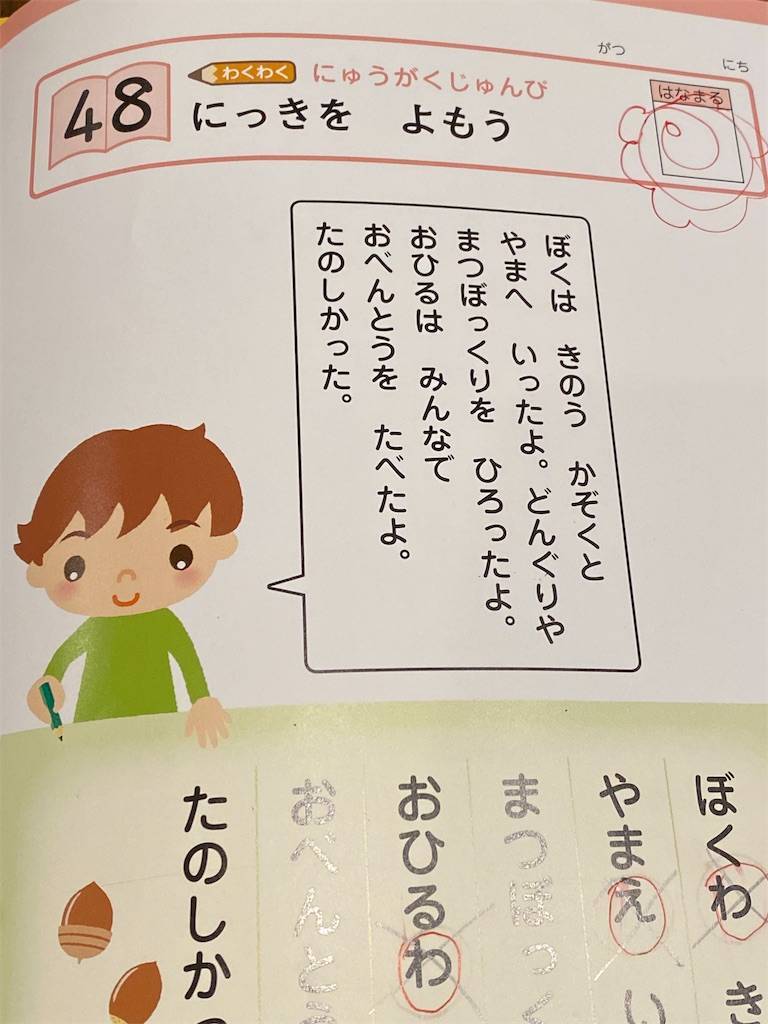 がつ
にち
48
わくわく
にゅうがくじゅんび
にっきを　よもう
はなまる
ぼくは　きのう　かぞくと
やまへ　いったよ。どんぐりや
まつぼっくりを　ひろったよ。
おひるは　みんなで
おべんとうを　たべたよ。
たのしかった。
ぼくわ　き
やまえ　い
まつぼっく
おひるわ
おべんとう
たのしか